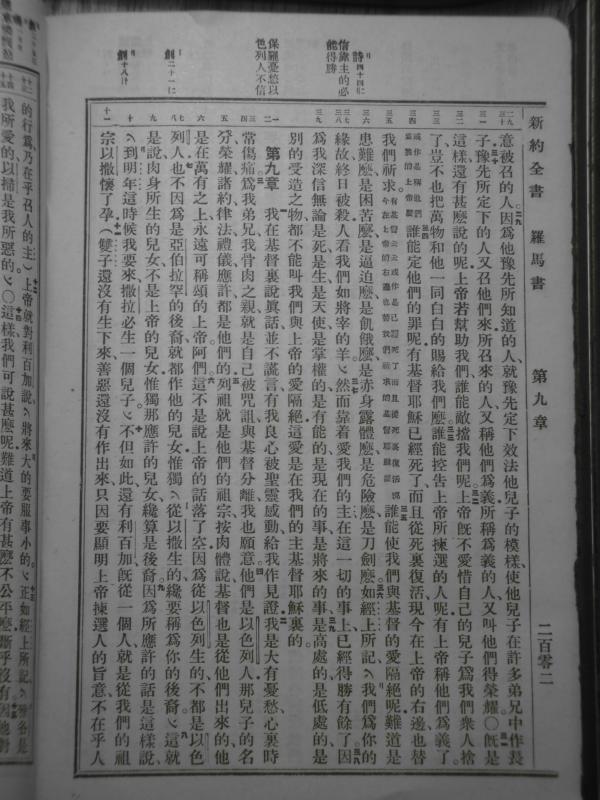 新約全書 羅馬書 第九章 二百零二
意被召的人因爲他豫先所知道的人就豫先定下效法他兒子的模樣使他兒子在許多弟兄中作長
子豫先所定下的人又召他們來所召來的人又稱他們爲義所稱爲義的人又叫他們得榮耀〇旣是
這樣還有甚麽說的呢上帝若幫助我們誰能敵擋我們呢上帝旣不愛惜自己的兒子爲我們衆人捨
了豈不也把萬物和他一同白白的賜給我們麽誰能控告上帝所揀選的人呢有上帝稱他們爲義了
誰能定他們的罪呢有基督耶穌已經死了而且從死裏復活現今在上帝的右邊也替
我們祈求 誰能使我們與基督的愛隔絕呢難道是
患難麽是困苦麽是逼迫麽是飢餓麽是赤身露體麽是危險麽是刀劍麽如經上所記我們爲你的
緣故終日被殺人看我們如將宰的羊然而靠着愛我們的主在這一切的事上已經得勝有餘了因
爲我深信無論是死是生是天使是掌權的是有能的是現在的事是將來的事是高處的是低處的是
別的受造之物都不能叫我們與上帝的愛隔絕這愛是在我們的主基督耶穌裏的
第九章 我在基督裏說眞話並不謊言有我良心被聖靈感動給我作見證我是大有憂愁心裏時
常傷痛爲我弟兄我骨肉之親就是自己被咒詛與基督分離我也願意他們是以色列人那兒子的名
分榮耀諸約律法禮儀應許都是他們的列祖就是他們的祖宗按肉體說基督也是從他們出來的他
是在萬有之上永遠可稱頌的上帝阿們這不是說上帝的話落了空因爲從以色列生的不都是以色
列人也不因爲是亞伯拉罕的後裔就都作他的兒女惟獨從以撒生的纔要稱爲你的後裔這就
是說肉身所生的兒女不是上帝的兒女惟獨那應許的兒女纔算是後裔因爲所應許的話是這樣說
到明年這時候我要來撒拉必生一個兒子不但如此還有利百加旣從一個人就是從我們的祖
宗以撒懷了孕(雙子還沒有生下來善惡還沒有作出來只因要顯明上帝揀選人的旨意不在乎人
的行爲乃在乎召人的主)上帝就對利百加說將來大的要服事小的正如經上所記雅各是
我所愛的以掃是我所惡的〇這樣我們可說甚麽呢難道上帝有甚麽不公平麽斷乎沒有因他對
詩四十四
信靠主的必
能得勝
保羅憂愁以
色列人不信
創二十一
創十八